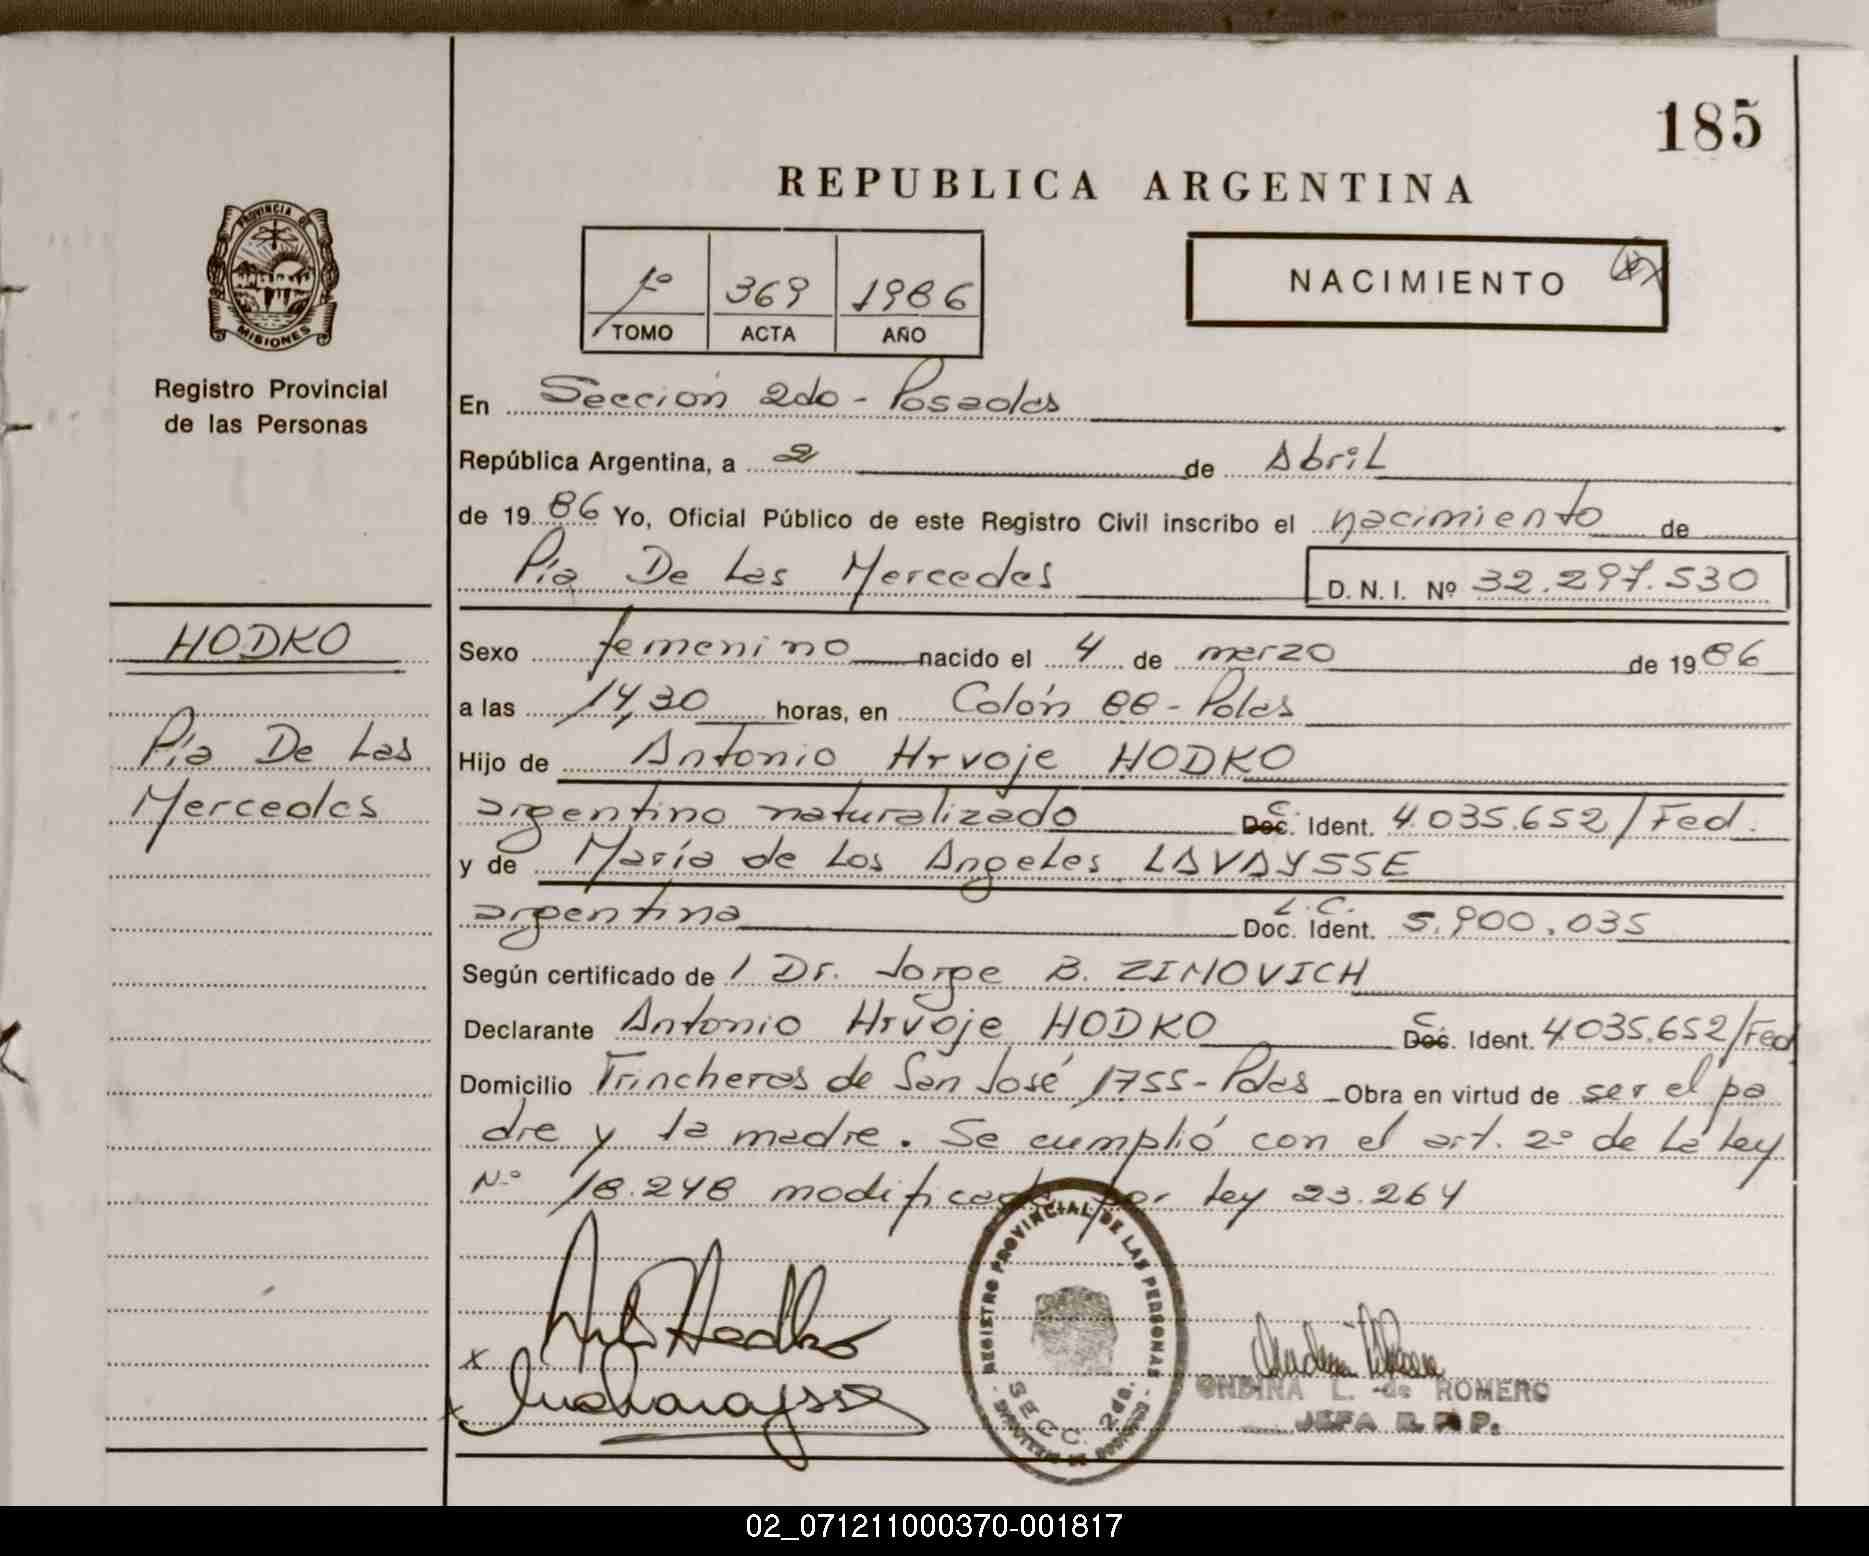 185
REPUBLICA ARGENTINA
PROVINCIA DE
MISIONES
Registro Provincial
de las Personas
1º 369 1986
TOMO ACTA AÑO
NACIMIENTO
En Sección 2da - Posadas
República Argentina, a 2 de Abril
de 1986 Yo, Oficial Público de este Registro Civil inscribo el nacimiento de
Pía De Las Mercedes D. N. I. Nº 32.297.530
HODKO
Pía De Las
Mercedes
Sexo femenino nacido el 4 de marzo de 1986
a las 14,30 horas, en Colón 88 - Pdas
Hijo de Antonio Hrvoje HODKO
argentino naturalizado C. Ident. 4.035.652/Fed.
y de María de Los Angeles LAVAYSSE
argentina L.C.
Doc. Ident. 5.900.035
Según certificado de / Dr. Jorge B. ZIMOVICH
Declarante Antonio Hrvoje HODKO C. Ident. 4.035.652/Fed
Domicilio Trincheras de San José 1755 - Pdas Obra en virtud de ser el pa
dre y la madre. Se cumplió con el art. 2º de La Ley
Nº 18.248 modificada por Ley 23.264
REGISTRO PROVINCIAL DE LAS PERSONAS
SECC. 2da.
x
ONDINA L. de ROMERO
JEFA R. P. P.
02_071211000370-001817